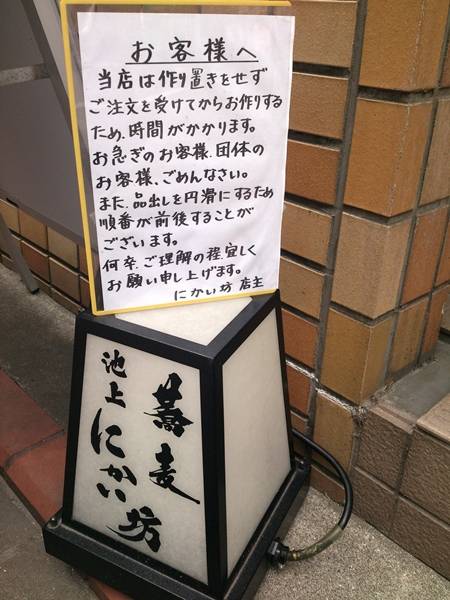 お客様へ
当店は作り置きをせず
ご注文を受けてからお作りする
ため、時間がかかります。
お急ぎのお客様、団体の
お客様、ごめんなさい。
また、品出しを円滑にするため
順番が前後することが
ございます。
何卒、ご理解の程、宜しく
お願い申し上げます。
にかい坊 店主
蕎麦
池上
にかい坊